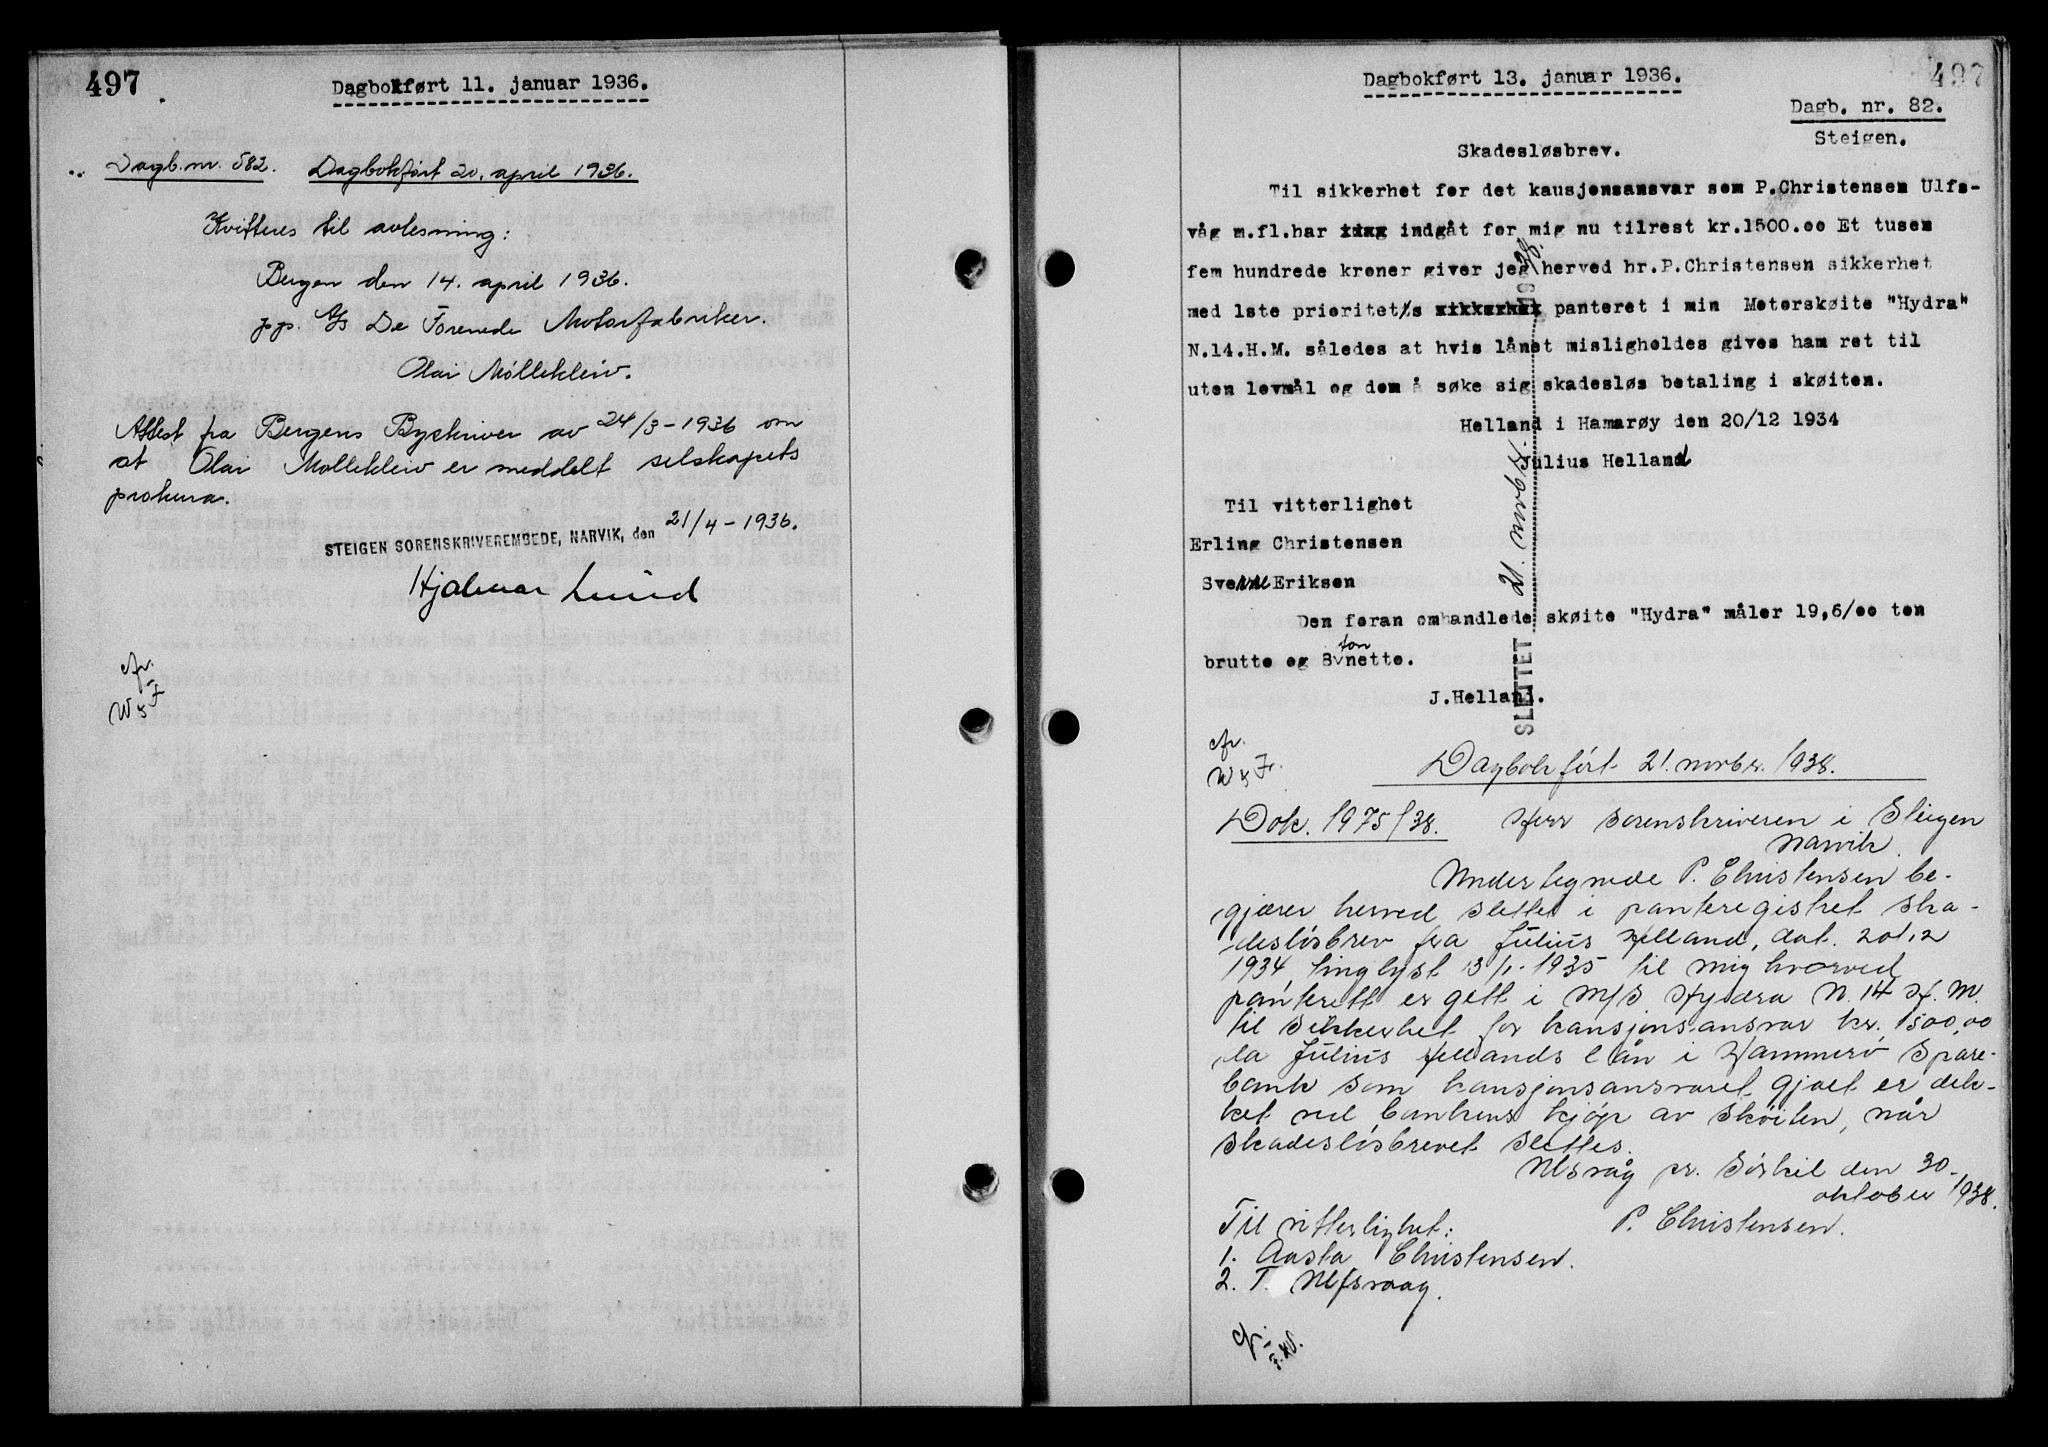 497
Dagbokført 11. januar 1936.
Dagb.nr. 582. Dagbokført 20. april 1936.
Kvitteres til avlesning:
Bergen den 14. april 1936.
pp. A/S De Forenede Motorfabriker.
Olai Møllekleiv.
Attest fra Bergens Byskriver av 24/3-1936 om
at Olai Møllekleiv er meddelt selskapets
prokura.
STEIGEN SORENSKRIVEREMBEDE, NARVIK, den 21/4-1936.
Hjalmar Lund
cfr.
497
Dagbokført 13. januar 1936.
Dagb. nr. 82.
Steigen.
Skadesløsbrev.
Til sikkerhet for det kausjonsansvar som P.Christensen Ulfs-
våg m.fl.har indgåt for mig nu tilrest kr.1500.oo Et tusen
fem hundrede kroner giver jeg herved hr.P.Christensen sikkerhet
med 1ste prioritet/s panteret i min Motorskøite "Hydra"
N.14.H.M. således at hvis lånet misligholdes gives ham ret til
uten lovmål og dom å søke sig skadesløs betaling i skøiten.
Helland i Hamarøy den 20/12 1934
Julius Helland
Til vitterlighet
Erling Christensen
Sverre Eriksen
Den foran omhandlede skøite "Hydra" måler 19,6/oo ton
brutto og 8 ton netto.
J.Helland.
SLETTET 21. novbr. 1938.
cfr.
Dagbokført 21. novbr. 1938.
Dok. 1975/38. Herr sorenskriveren i Steigen
Narvik.
Undertegnede P. Christensen be-
gjærer herved slettet i panteregistret ska-
desløsbrev fra Julius Helland, dat. 20/12
1934, tinglyst 13/1-1935 til mig hvorved
panterett er gett i M/S Hydra N. 14 H. M.
til sikkerhet for kausjonsansvar kr. 1500,00
da Julius Hellands lån i Hammerø Spare-
bank som kausjonsansvaret gjaet er dek-
ket ved bankens kjöp av Sköiten, når
skadeslösbrevet slettes.
Ulsvåg pr. Sörkil den 30.
oktober 1938.
P. Christensen.
Til vitterlighet:
1. Aasta Christensen.
2. T. Ulfsvaag.